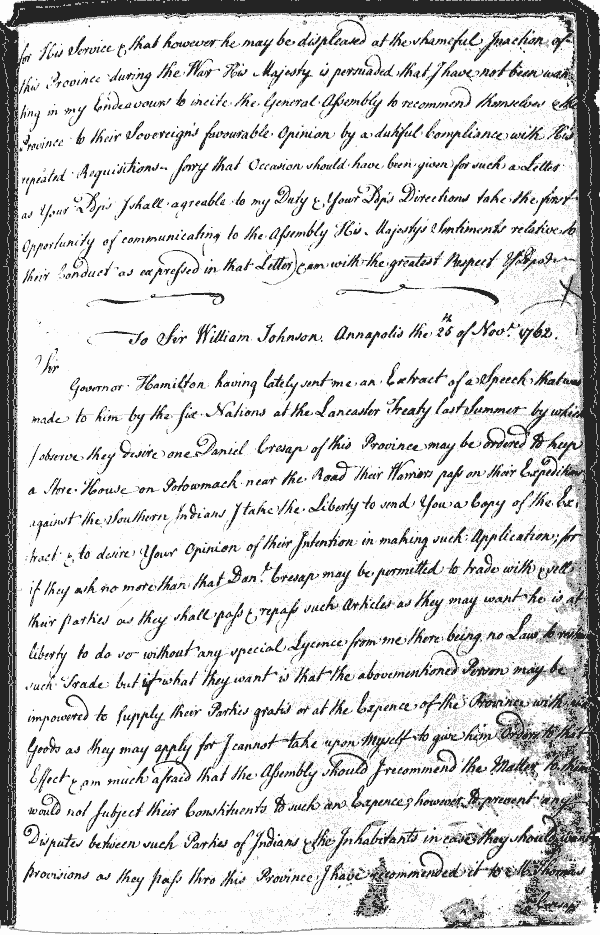 for His Service & that however he may be displeased at the shameful Inaction of
this Province during the War His Majesty is persuaded that I have not been wan-
ting in my Endeavours to incite the General Assembly to recommend themselves & the
Province to their Sovereign's favourable Opinion by a dutiful Compliance with His
repeated Requisitions. Sorry that Occasion should have been given for such a Letter
as Your Ldp's I shall agreable to my Duty & Your Ldp's Directions take the first
Opportunity of communicating to the Assembly His Majesty's Sentiments relative to
their Conduct as expressed in that Letter & am with the greatest Respect
To Sir William Johnson. Annapolis the 25th of Novr. 1762.
Sir
Governor Hamilton having lately sent me an Extract of a Speech that was
made to him by the six Nations at the Lancaster Treaty last Summer by which
I observe they desire one Daniel Cresap of this Province may be ordered to keep
a Store House on Potowmack near the Road their Warriors pass on their Expeditions
against the Southern Indians I take the Liberty to send You a Copy of the Ex-
tract & to desire Your Opinion of their Intention in making such Application; for
if they ask no more than that Danl. Cresap may be permitted to trade with & sell
their parties as they shall pass & repass such Articles as they may want he is at
liberty to do so without any special Lycence from me there being no Law to
such Trade but if what they want is that the abovementioned Person may be
impowered to supply their Parties gratis or at the Expence of the Province with
Goods as they may apply for I cannot take upon myself to give him Orders to that
Effect & am much afraid that the Assembly should I recommend the Matter to them
would not subject their Constituents to such an Expence; however to prevent any
Disputes between such Parties of Indians & the Inhabitants in case they should want
Provisions as they pass thro this Province I have recommended it to Mr. Thomas
Cresap